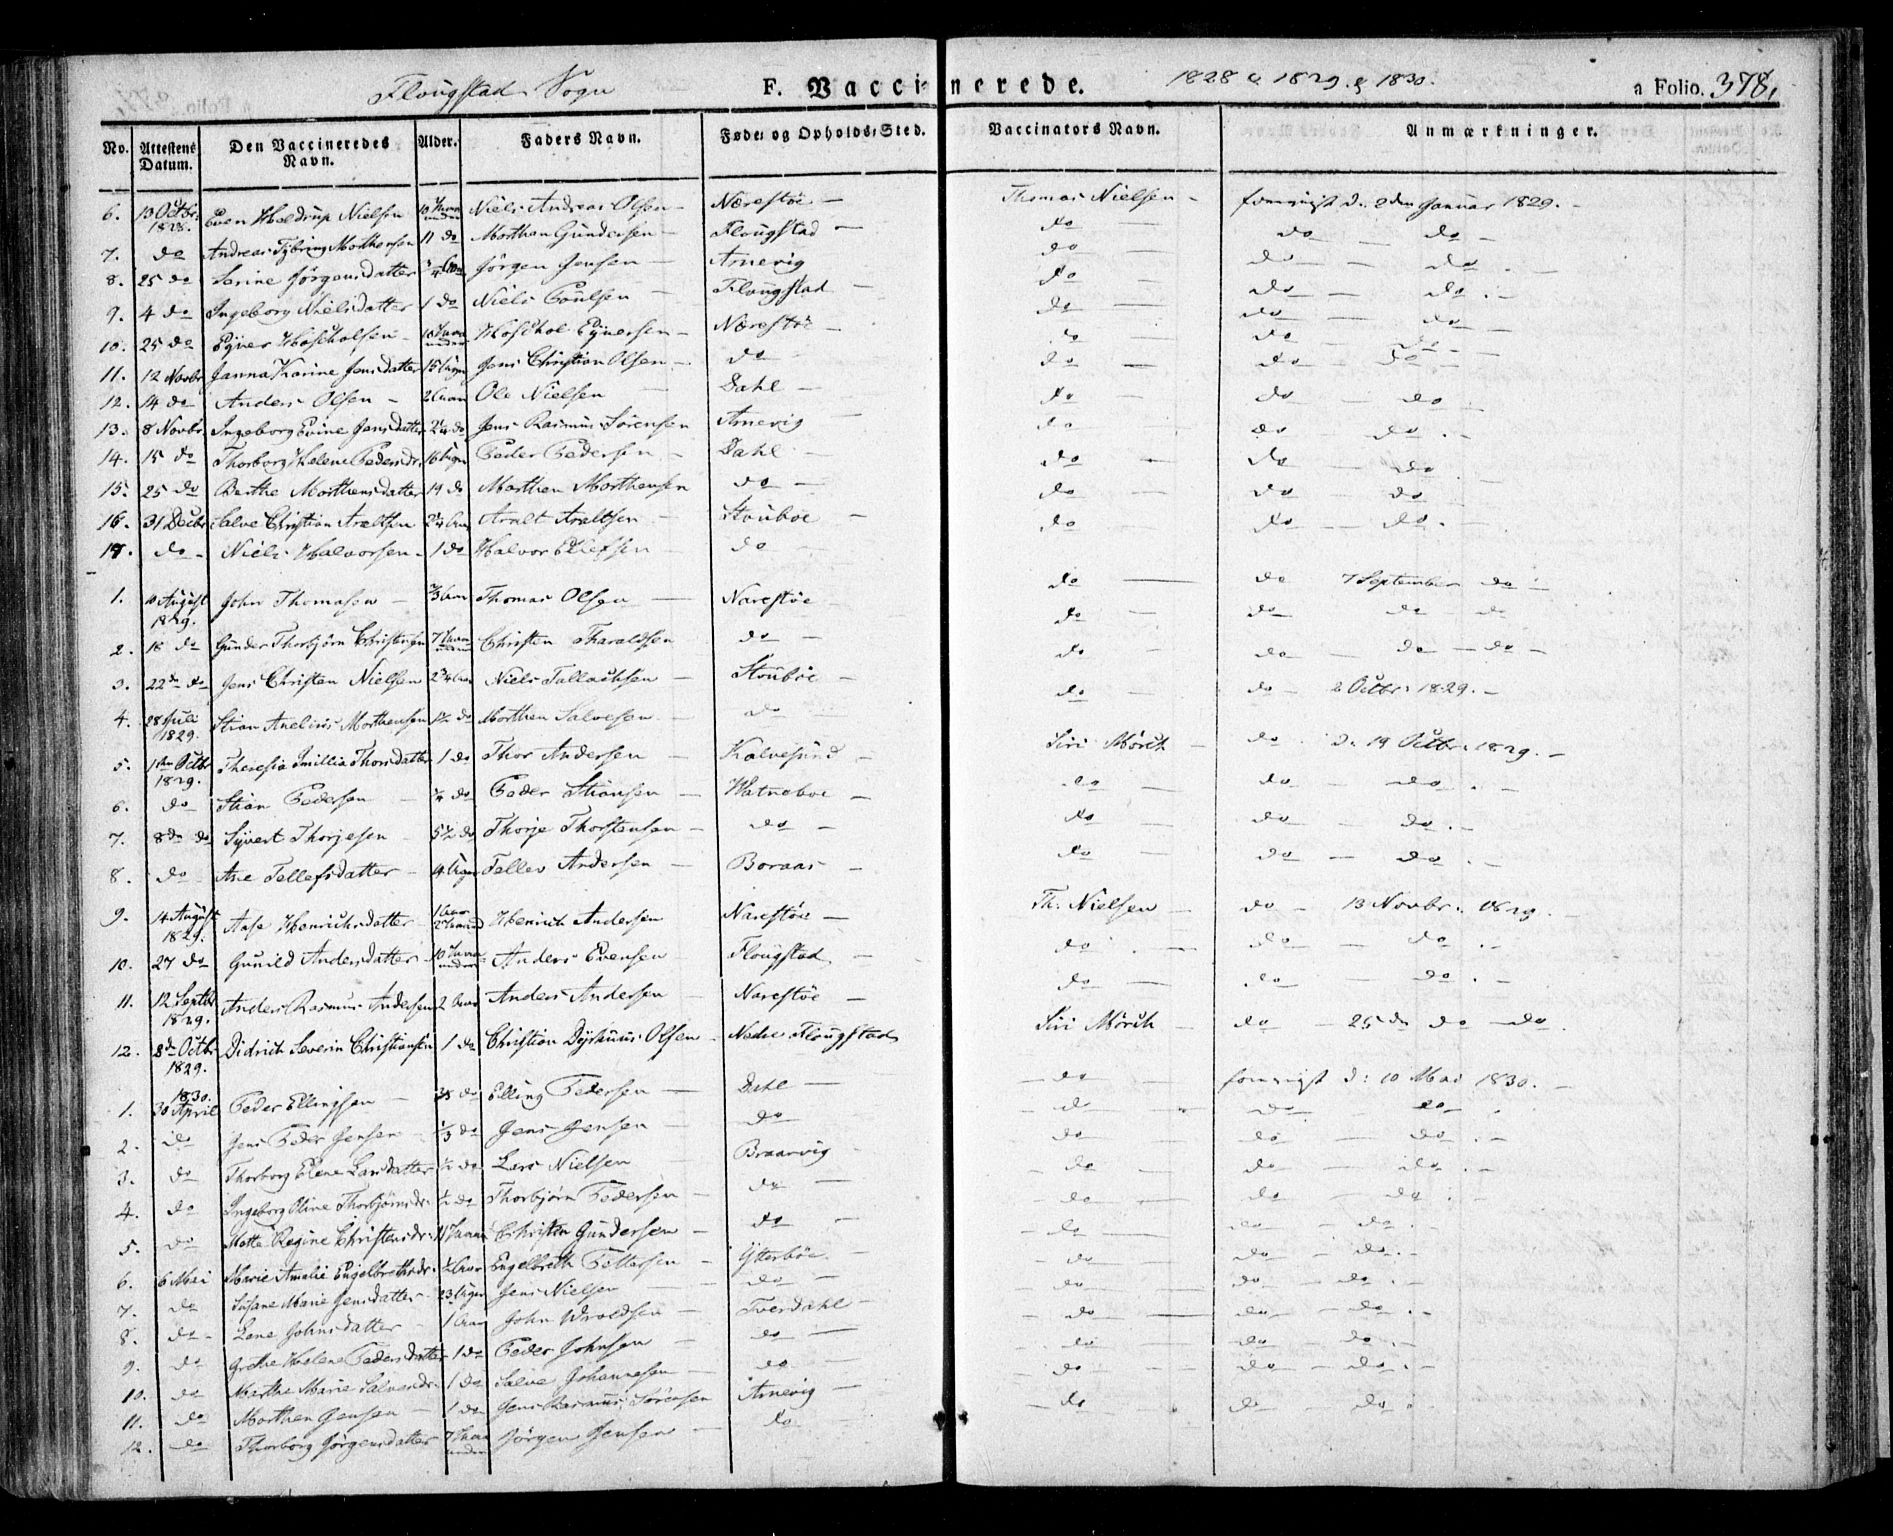 Flougstad Sogn F. Vaccinerede. 1828 & 1829 & 1830. a Folio. 378,
No. Attestens Datum. Den Vaccineredes Navn. Alder. Faders Navn. Føde- og Opholds-Sted. Vaccinators Navn. Anmærkninger.
6. 13 Octbr. 1828. Even Heldrup Nielsen 10 Niels Andreas Olsen Nærestøe Thomas Nielsen d. 2den Januar 1829.
7. do Andreas Tybring Morthensen 11 do Morthan Gundersen Flougstad do do do
8. 25 do Serine Jörgensdatter 3/4 Aar Jörgen Jensen Arnevig do do do
9. 4 do Ingeborg Nielsdatter 1 do Niels Poulsen Flougstad do do do
10. 25 do Ejver Hoscholsen 10 Hoschol Eyversen Nærestöe do do do
11. 12 Novbr Janna Karine Jensdatter 15 Uger Jens Christian Olsen do do do do
12. 14 do Anders Olsen 2 Aar Ole Nielsen Dahl do do do
13. 8 Novbr. Ingeborg Evine Jensdatter 2 1/4 do Jens Rasmus Sörensen Arnevig do do do
14. 15 do Thorborg Helene Pedersdr. 16 Uger Peder Pedersen Dahl do do do
15. 25 do Berthe Morthensdatter 19 do Morthen Morthensen do do do do
16. 31 Decbr. Salve Christian Araltsen Aar Aralt Araltsen Stouboe do do do
17. do Niels Halvorsen 1 do Halvor Ellefsen do
1. 10 August 1829. John Thomasen 2/3 Aar Thomas Olsen Narestöe do do 7 September do
2. 16 do Gunder Thorbjörn Christensen 7 Christen Tharaldsen do do do do do
3. 22de do Jens Christen Nielsen 2 3/4 Aar Niels Tallachsen Stouboe do do do do
4. 28 Juli 1829. Stian Anelius Morthensen 1/2 do Morthen Salvesen do do do 2 Octbr. 1829.
5. 1ste Octbr 1829. Theresia Emillia Thorsdatter 1 do Thor Andersen Kalvesund Siri Mörch do d. 19 Octbr. 1829.
6. do Stian Pedersen 1/4 do Peder Stiansen Watneboe do do do
7. 8de do Syvert Thorjesen 5 1/2 do Thorje Thorstensen do do do do
8. do Ane Tellefsdatter 4 Uger Tellev Andersen Boraas do do do
9. 14 August 1829. Aase Henrichsdatter 1 Aar Henrich Andersen Narestöe Th. Nielsen do 13 Novbr. 1829.
10. 27 do Gunild Andersdatter 10 Anders Evensen Flougstad do do do
11. 12 Septbr 1829. Anders Rasmus Andersen 2 Aar Anders Andersen Narestöe do do do
12. 8de Octbr 1829. Didrich Severin Christiansen 1 do Christian Dyshuus Olsen Nedre Flougstad Siri Mörch do 25de do do
1. 1830. 30 April Peder Ellingsen do Elling Pedersen Dahl do d: 10 Mai 1830.
2. do Jens Peder Jensen 1/3 do Jens Jensen do do do do
3. do Thorborg Elene Larsdatter 1/2 do Lars Nielsen Braarvig do do do
4. do Ingeborg Oline Thorbjörnsdr. 1/2 do Thorbjörn Pedersen do do do do
5. do Mette Regine Christensdr. 11 Christen Gundersen do do do do
6. 6 Mai Marie Amalie Engelbrethsdr. 1/2 Aar Engelbreth Pettersen Ytterböe do do do
7. do Susane Marie Jensdatter 23 Uger Jens Nielsen do do do do
8. do Lene Johnsdatter 1 Aar John Wroldsen Tverdahl do do do
9. do Grethe Helene Pedersdatter 1 do Peder Johnsen do do do do
10. do Marthe Marie Salvesdr. 1 do Salve Johannesen do do do do
11. do Morthen Jensen 1 do Jens Rasmus Sörensen Arnevig do do do
12. do Thorborg Jörgensdatter 7 Jörgen Jensen do